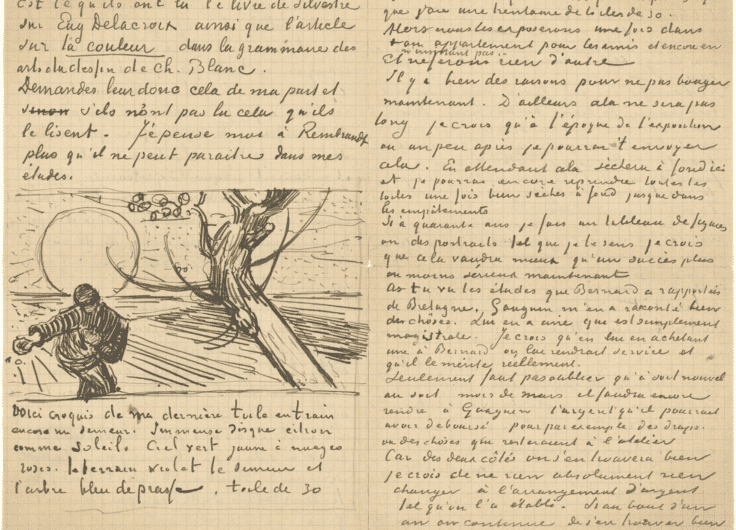 est ce qu'ils ont lu le livre de Silvestre
sur Eug Delacroix ainsi que l'article
sur la couleur dans la grammaire des
arts du dessin de Ch. Blanc.
Demandes leur donc cela de ma part et
sinon s'ils n'ont pas lu cela qu'ils
le lisent. Je pense moi à Rembrandt
plus qu'il ne peut paraitre dans mes
études.
Voici croquis de ma dernière toile en train
encore un semeur. Immense disque citron
comme soleil. Ciel vert jaune à nuages
roses. le terrain violet le semeur et
l'arbre bleu de prusse. toile de 30
que j'aie une trentaine de toiles de 30.
Alors nous les exposerons une fois dans
ton appartement pour les amis et encore en
n'insistant pas.
Et ne ferons rien d'autre
Il y a bien des raisons pour ne pas bouger
maintenant. D'ailleurs cela ne sera pas
long je crois qu'à l'époque de l'exposition
ou un peu après je pourrai t'envoyer
cela. En attendant cela sechera à fond ici
et je pourrai encore reprendre toutes les
toiles une fois bien sèches à fond jusque dans
les empâtements
Si à quarante ans je fais un tableau de figures
ou des portraits tel que je le sens je crois
que cela vaudra mieux qu'un succès plus
ou moins sérieux maintenant
As tu vu les études que Bernard a rapportés
de Bretagne, Gauguin m'en a raconté bien
des choses. Lui en a une qui est simplement
magistrale. Je crois qu'en lui en achetant
une à Bernard on lui rendrait service et
qu'il le mérite reellement.
Seulement faut pas oublier qu'à soit nouvel
an soit mois de mars il faudra encore
rendre à Gauguin l'argent qu'il pourrait
avoir deboursé pour par exemple des draps.
ou des choses qui resteraient à l'atelier
Car des deux côtés on s'en trouvera bien
je crois de ne rien absolument rien
changer à l'arrangement d'argent
tel qu'on l'a établi. Si au bout d'un
an on continue de s'en trouver bien